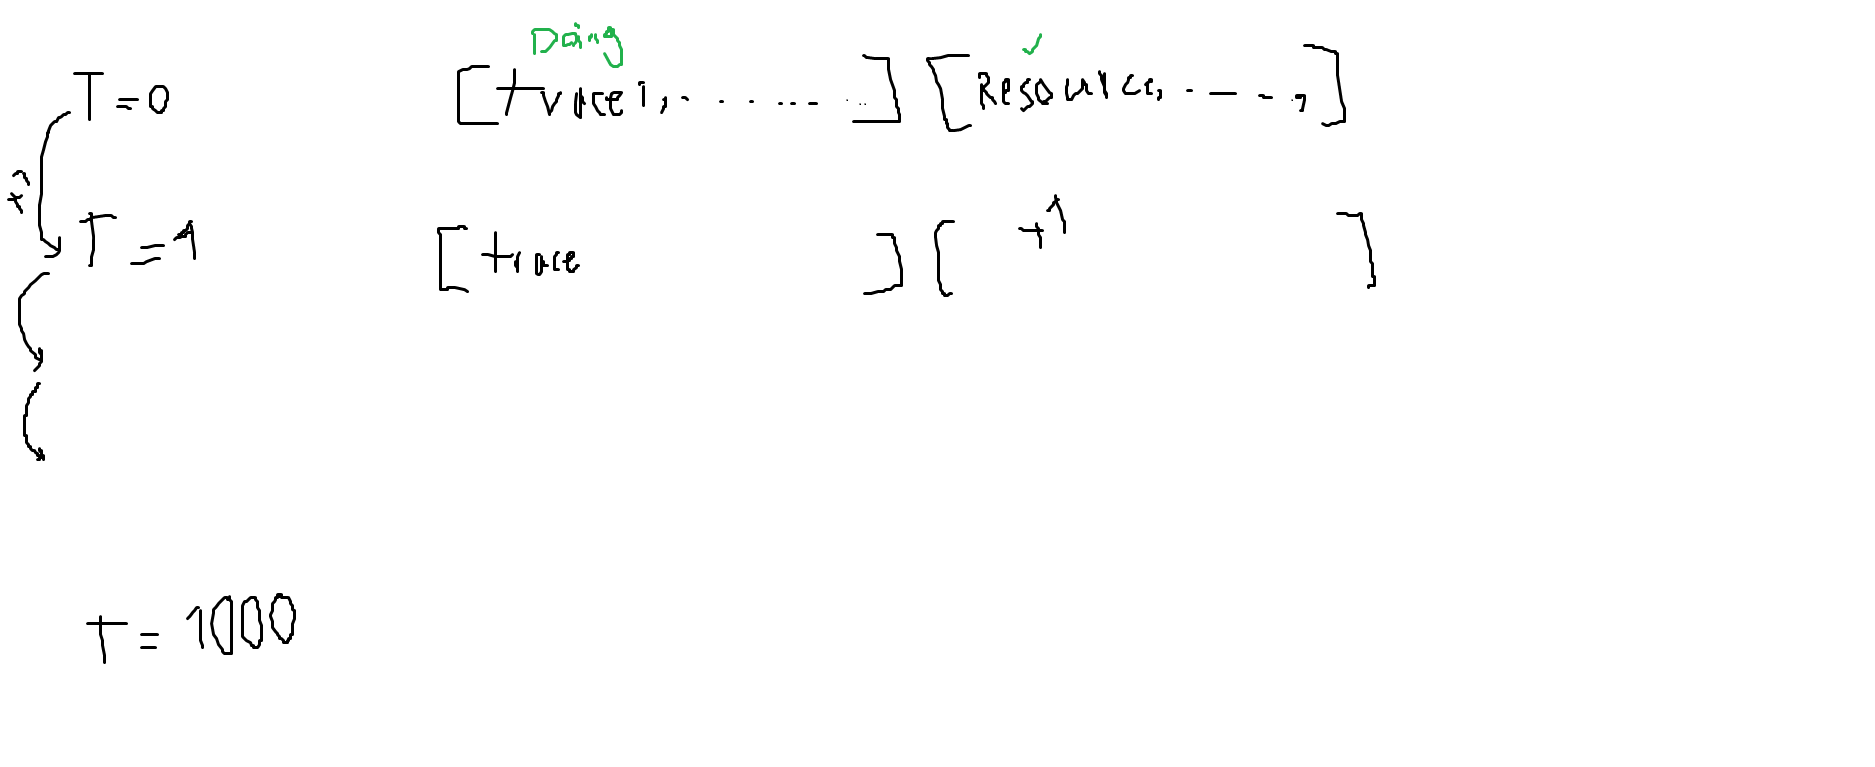 Doing ✓
T=0 [trace1, . . . . . . . . .] [Resource, . - - . - . . ,]
+1
T=1 [trace ] [ +1 ]
T=1000